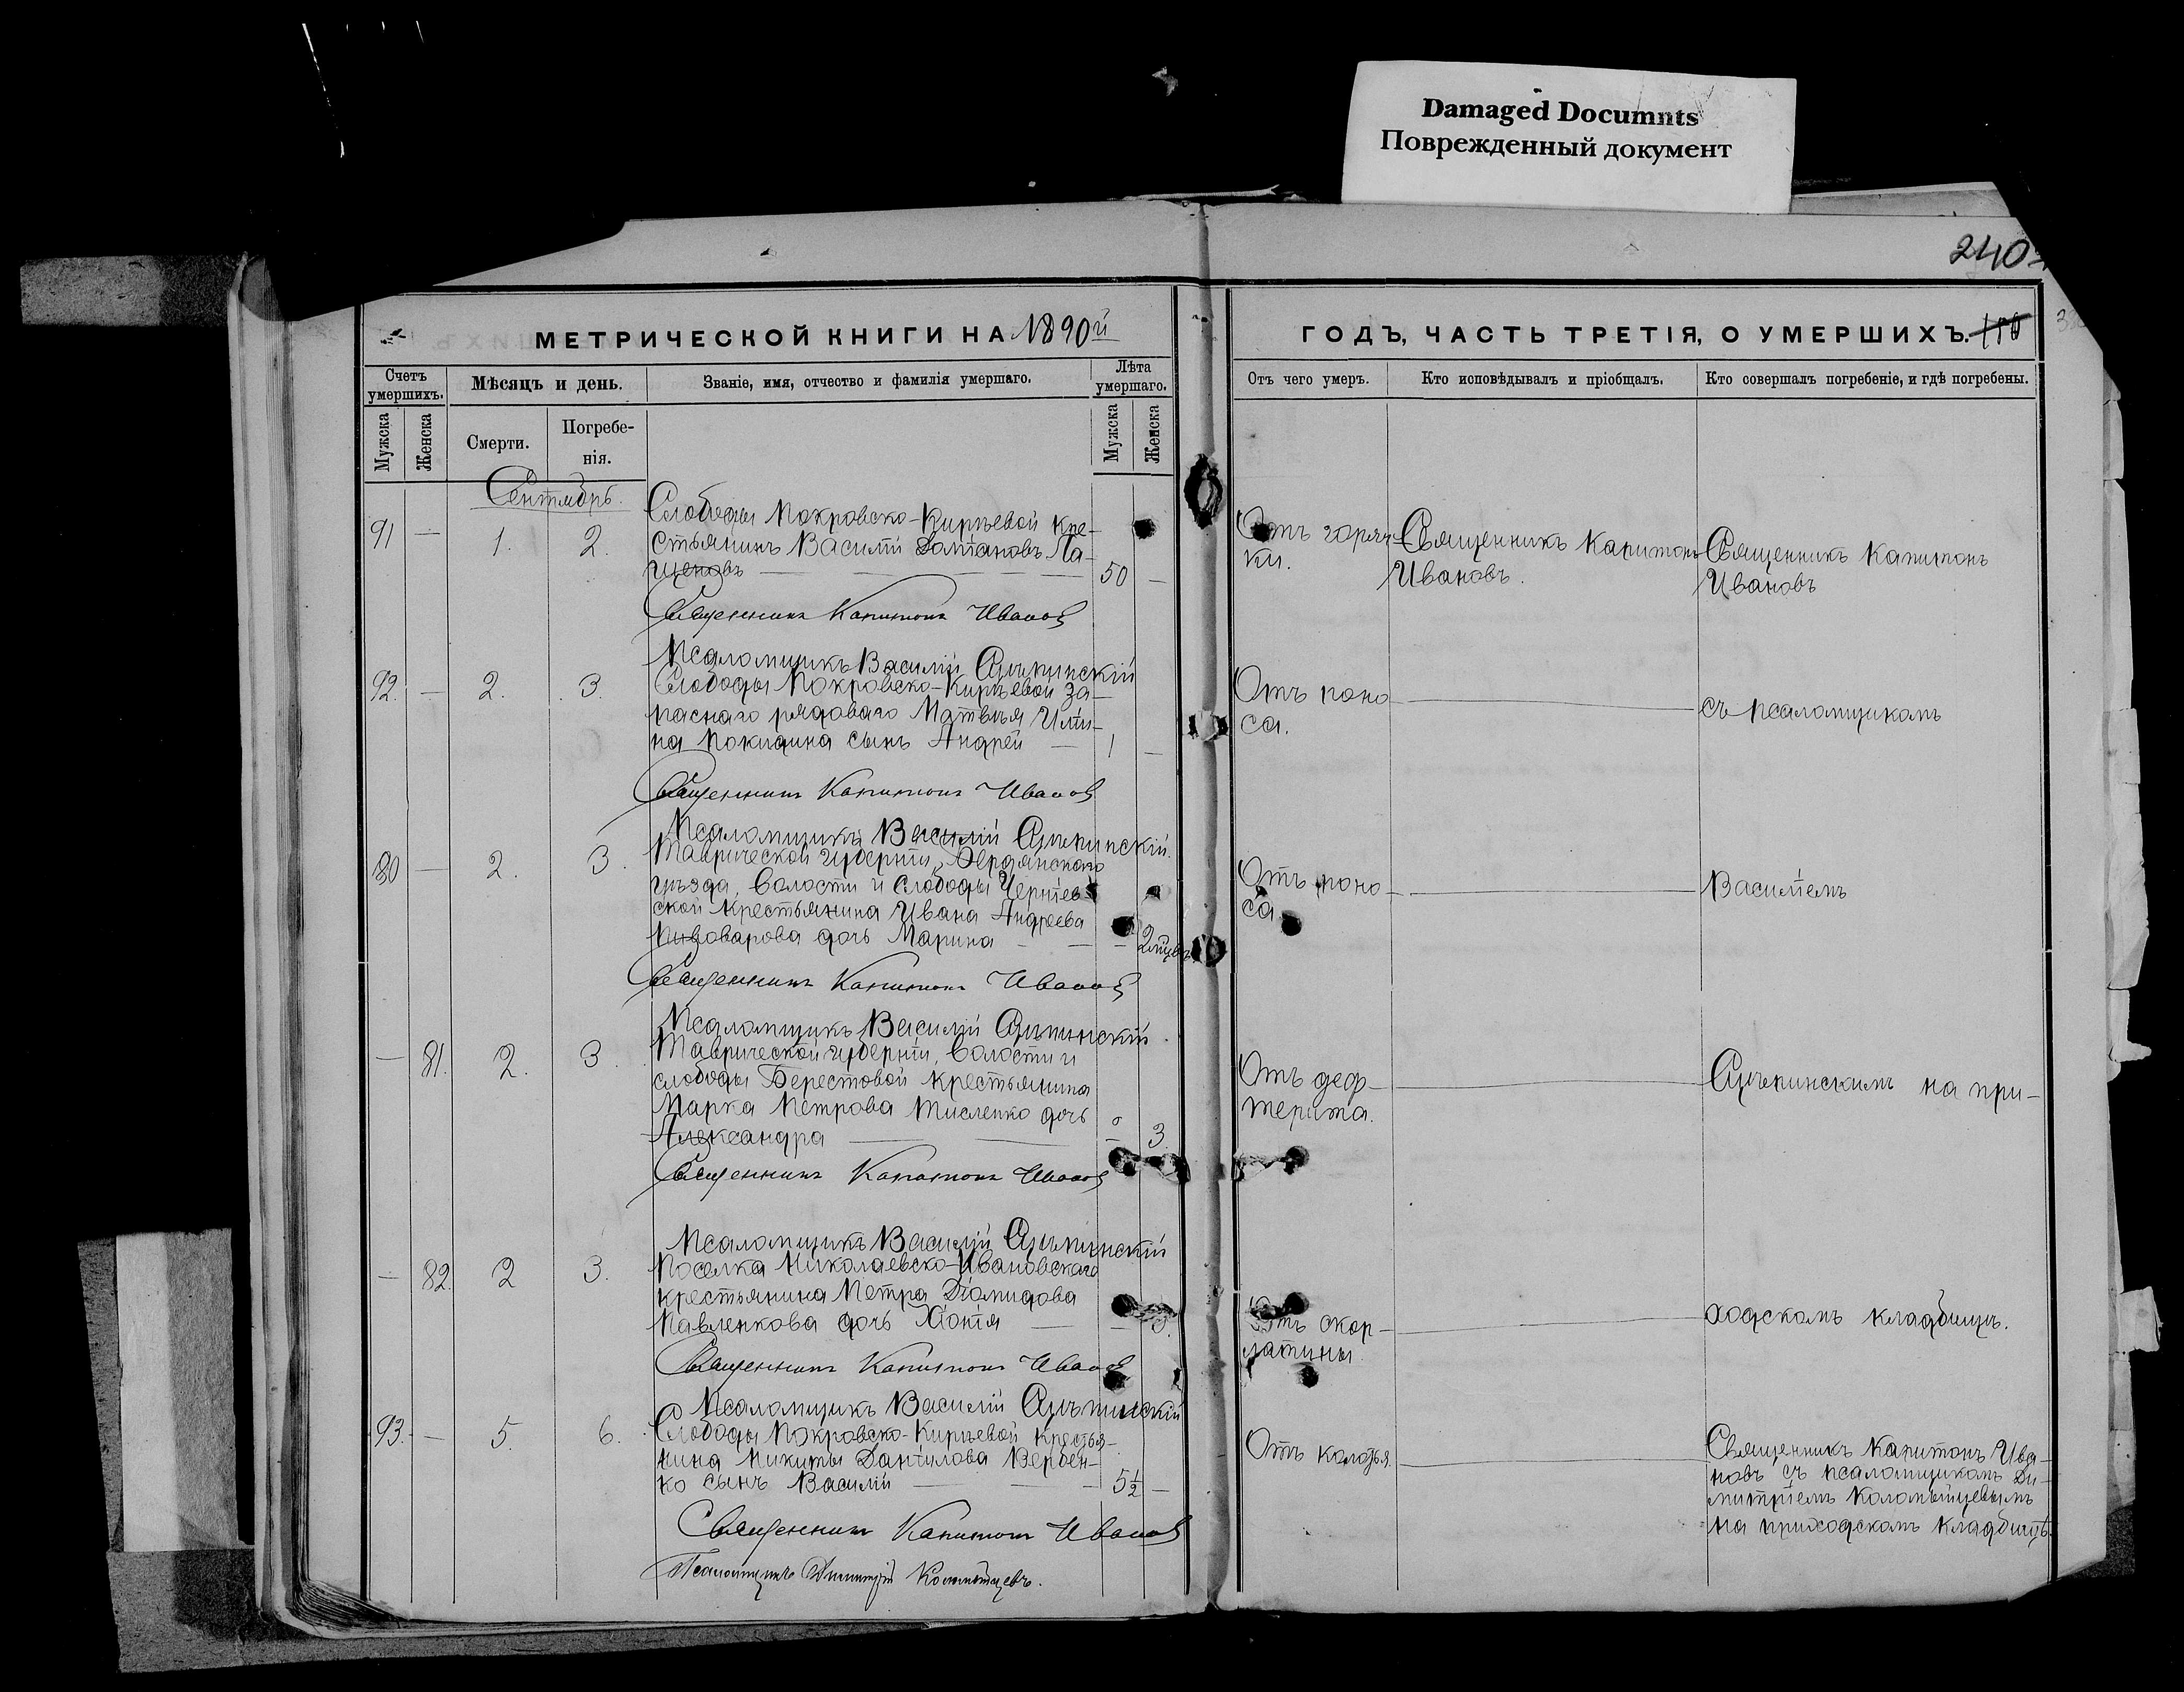 Damaged Documnts
Поврежденный документ
240
МЕТРИЧЕСКОЙ КНИГИ НА 1890й
ГОДЪ, ЧАСТЬ ТРЕТІЯ, О УМЕРШИХЪ.
Счетъ умершихъ.
Мѣсяцъ и день.
Званіе, имя, отчество и фамилія умершаго.
Лѣта умершаго.
Отъ чего умеръ.
Кто исповѣдывалъ и пріобщалъ.
Кто совершалъ погребеніе, и гдѣ погребены.
Мужска
Женска
Смерти.
Погребе-
нія.
Мужска
Женска
Сентябрь.
91 — 1. 2.
Слободы Покровско-Кирѣевой кре-
стьянинъ Василій
50 —
Отъ горяч
ки.
Священникъ Капитонъ
Ивановъ.
Священникъ Капитонъ
Ивановъ
Священникъ Капитонъ Ивановъ
Псаломщикъ Василій
92. — 2. 3.
Слободы Покровско-Кирѣевой за-
паснаго рядоваго Матвѣя Ильи-
на сынъ Андрей — 1 —
Отъ поно
са.
съ псаломщикомъ
Священникъ Капитонъ Ивановъ
Псаломщикъ Василій
80 — 2. 3.
Таврической губерніи, Бердянскаго
уѣзда, волости и слободы
ской крестьянина Ивана Андреева
Пивоварова дочь Марина — — — 2
Отъ поно-
са
Василіемъ
Священникъ Капитонъ Ивановъ
Псаломщикъ Василій
— 81. 2. 3.
Таврической губерніи, волости и
слободы Берестовой крестьянина
Марка Петрова Тисленко дочь
Александра — — — 3.
Отъ диф-
терита.
на при-
Священникъ Капитонъ Ивановъ
Псаломщикъ Василій
— 82. 2 3.
Поселка Николаевско-Ивановскаго
крестьянина Петра Діомидова
Павленкова дочь Хіонія
Отъ скар-
латины.
ходскомъ кладбищѣ.
Священникъ Капитонъ Ивановъ
Псаломщикъ Василій
93. — 5. 6.
Слободы Покровско-Кирѣевой крестья-
нина Никиты Данилова Вербен-
ко сынъ Василій — — 5½ —
Отъ колотья
Священникъ Капитонъ Ива-
новъ съ псаломщикомъ Ди-
митріемъ Коломыйцевымъ
на приходскомъ кладбищѣ.
Священникъ Капитонъ Ивановъ
Псаломщикъ Димитрій Коломыйцевъ.